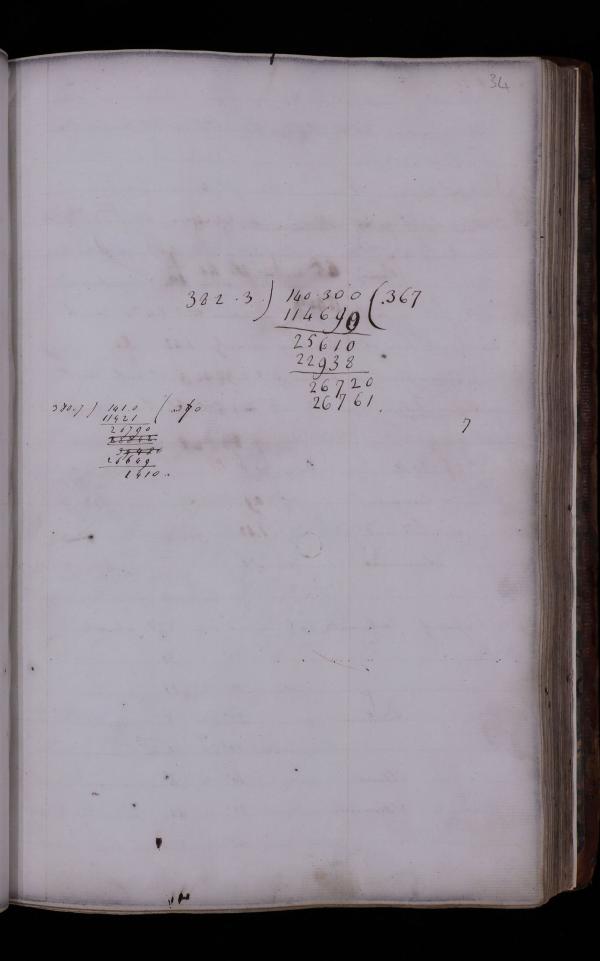 34
382.3.) 140.300 (.367
114690
25610
22938
26720
26761.
380.7) 141.0 (.370
11421
26790
26649
1410.
7